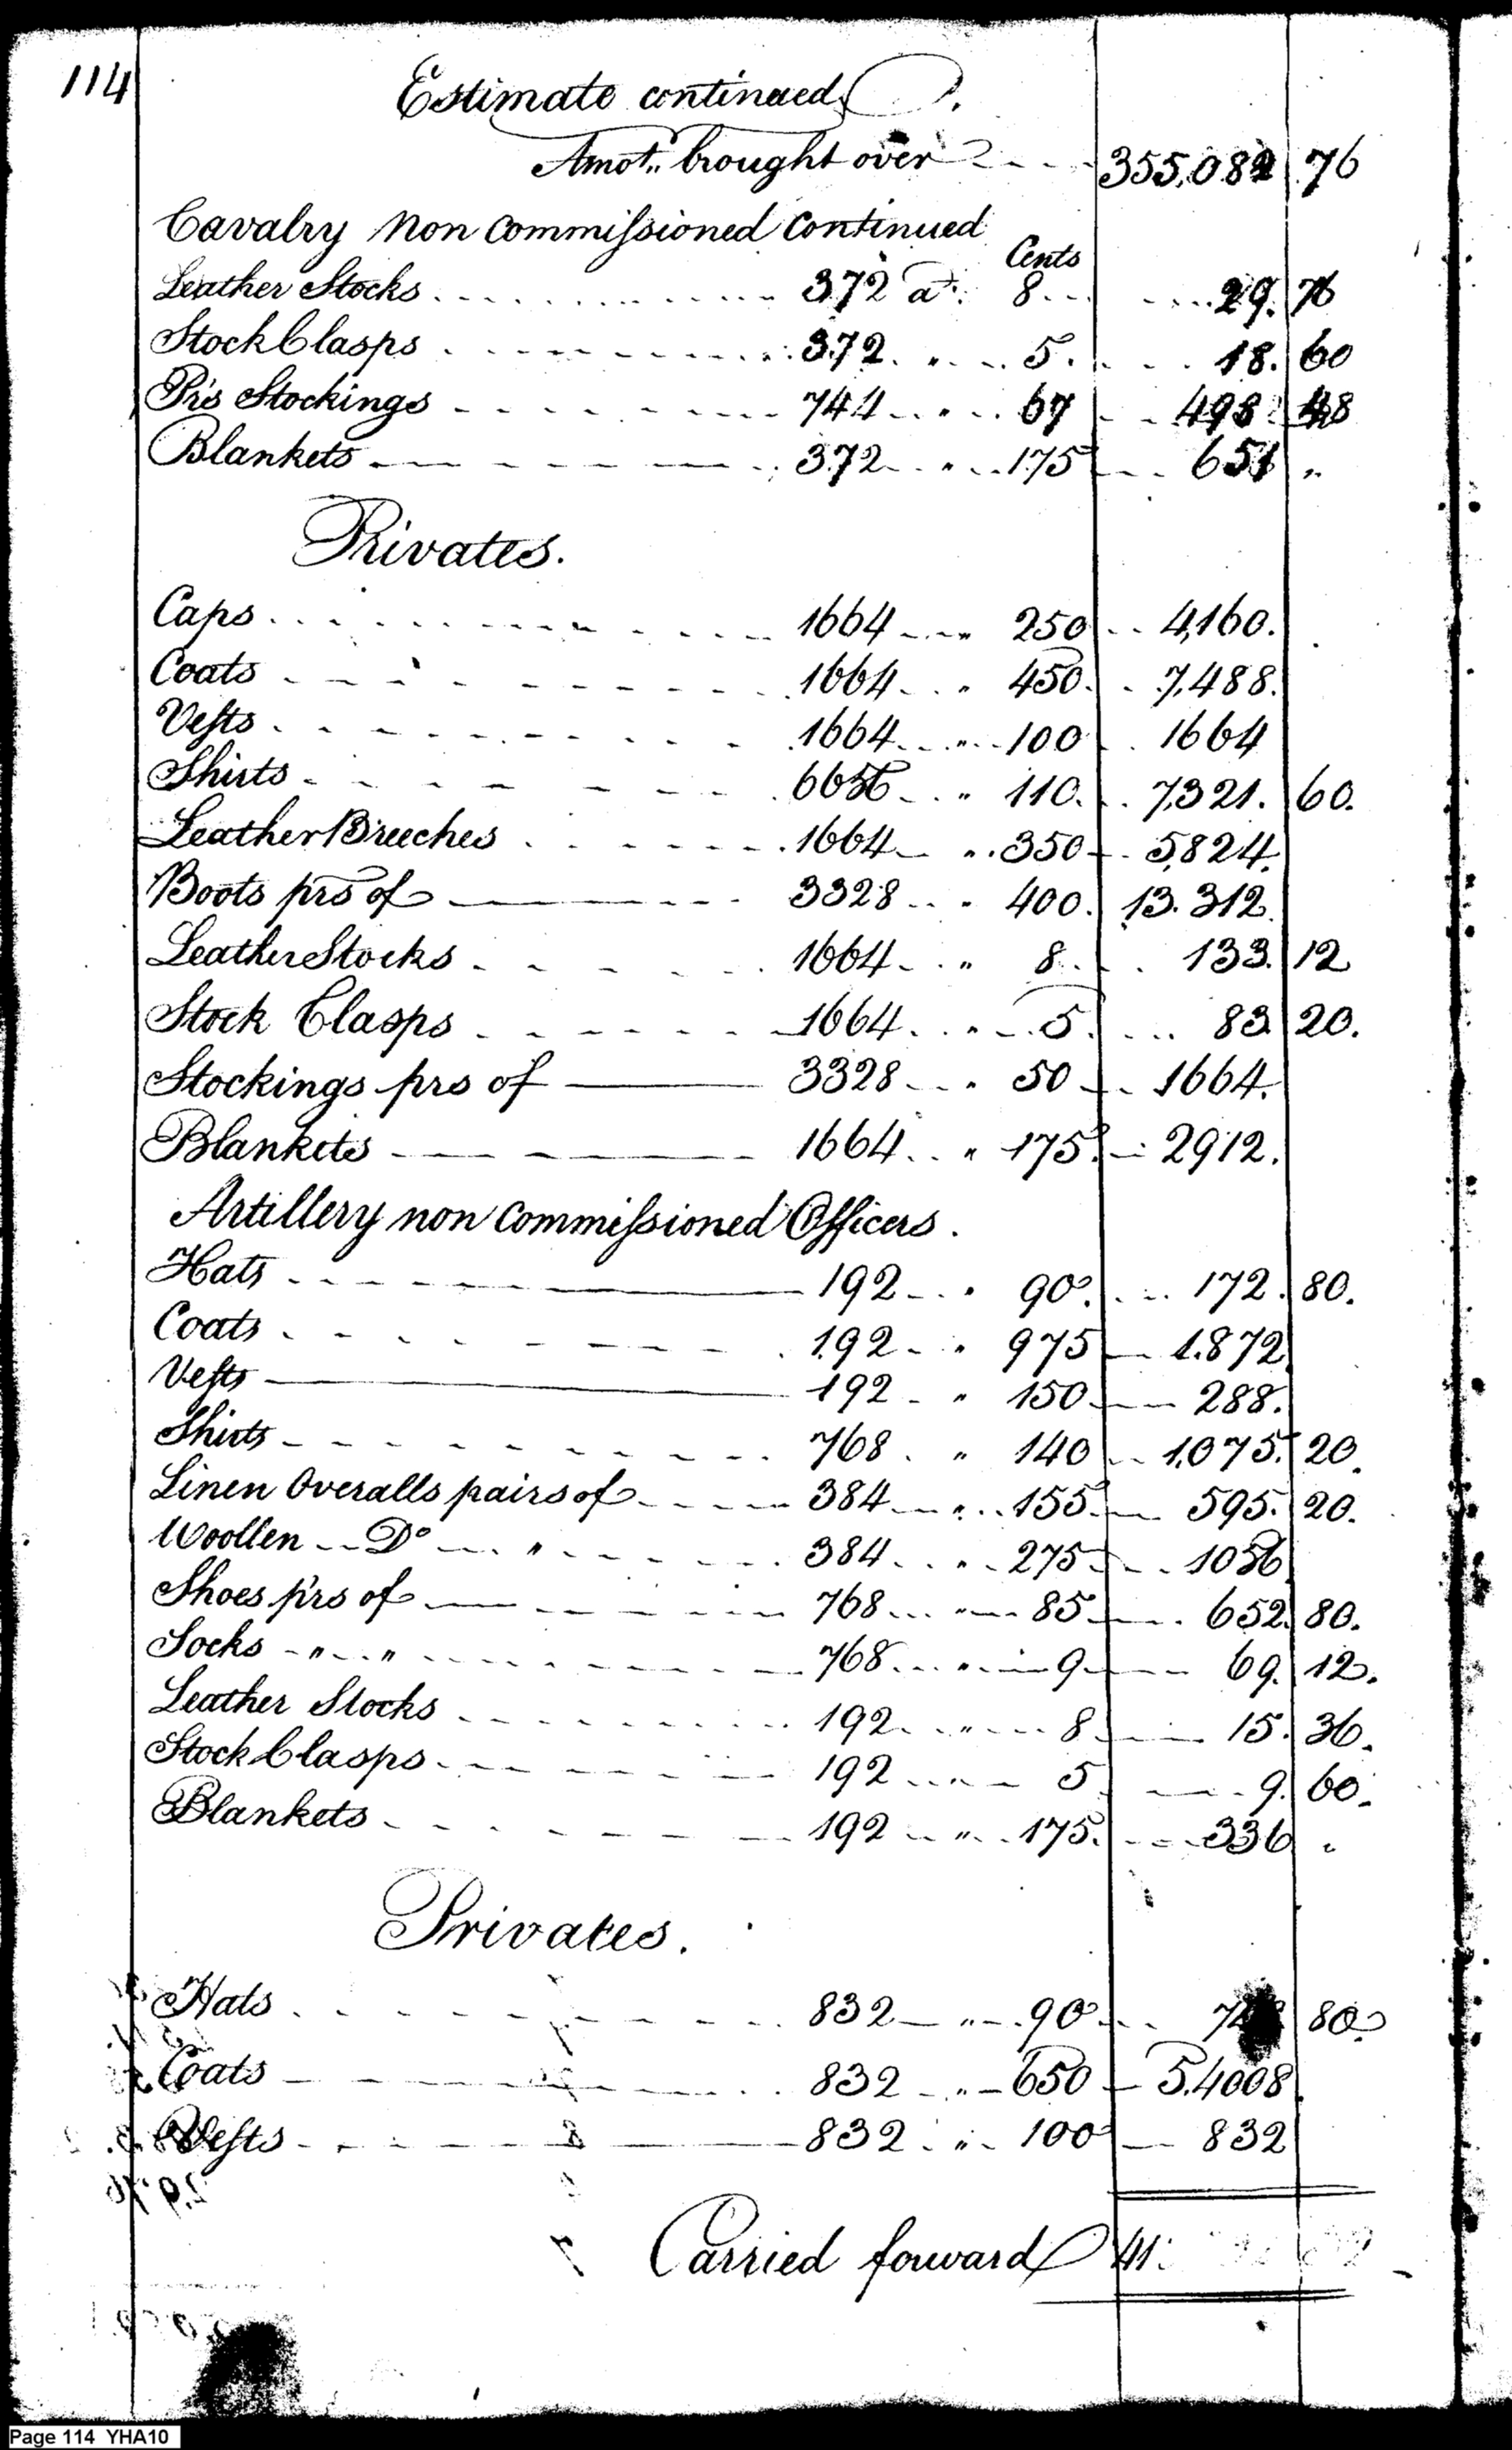 114
Estimate continued
Amot. brought over 355,082 76
Cavalry Non Commissioned Continued
Cents
Leather Stocks 372 at 8 29. 76
Stock Clasps 372 " 5. 18. 60
Prs Stockings 744 " 67 498 48
Blankets 372 " 175 651 "
Privates.
Caps 1664 " 250 4,160.
Coats 1664 " 450. 7,488.
Vests 1664 " 100 1664
Shirts 6656 " 110. 7,321. 60.
Leather Breeches 1664 " 350 5,824.
Boots prs of 3328 " 400. 13.312.
Leather Stocks 1664 " 8 133. 12
Stock Clasps 1664 " 5. 83. 20.
Stockings prs of 3328 " 50 1664.
Blankets 1664 " 175. 2912.
Artillery non Commissioned Officers.
Hats 192 " 90. 172. 80.
Coats 192 " 975 1.872
Vests 192 " 150 288.
Shirts 768 " 140 1,075. 20.
Linen Overalls pairs of 384 " 155. 595. 20.
Woollen Do " 384 " 275 1056
Shoes prs of 768 " 85 652. 80.
Socks " " 768 " 9 69. 12.
Leather Stocks 192 " 8 15. 36.
Stock Clasps 192 " 5 9. 60.
Blankets 192 " 175. 336 "
Privates.
Hats 832 " 90 80.
Coats 832 " 650 5.4008
Vests 832 " 100 832
Carried forward
Page 114 YHA10